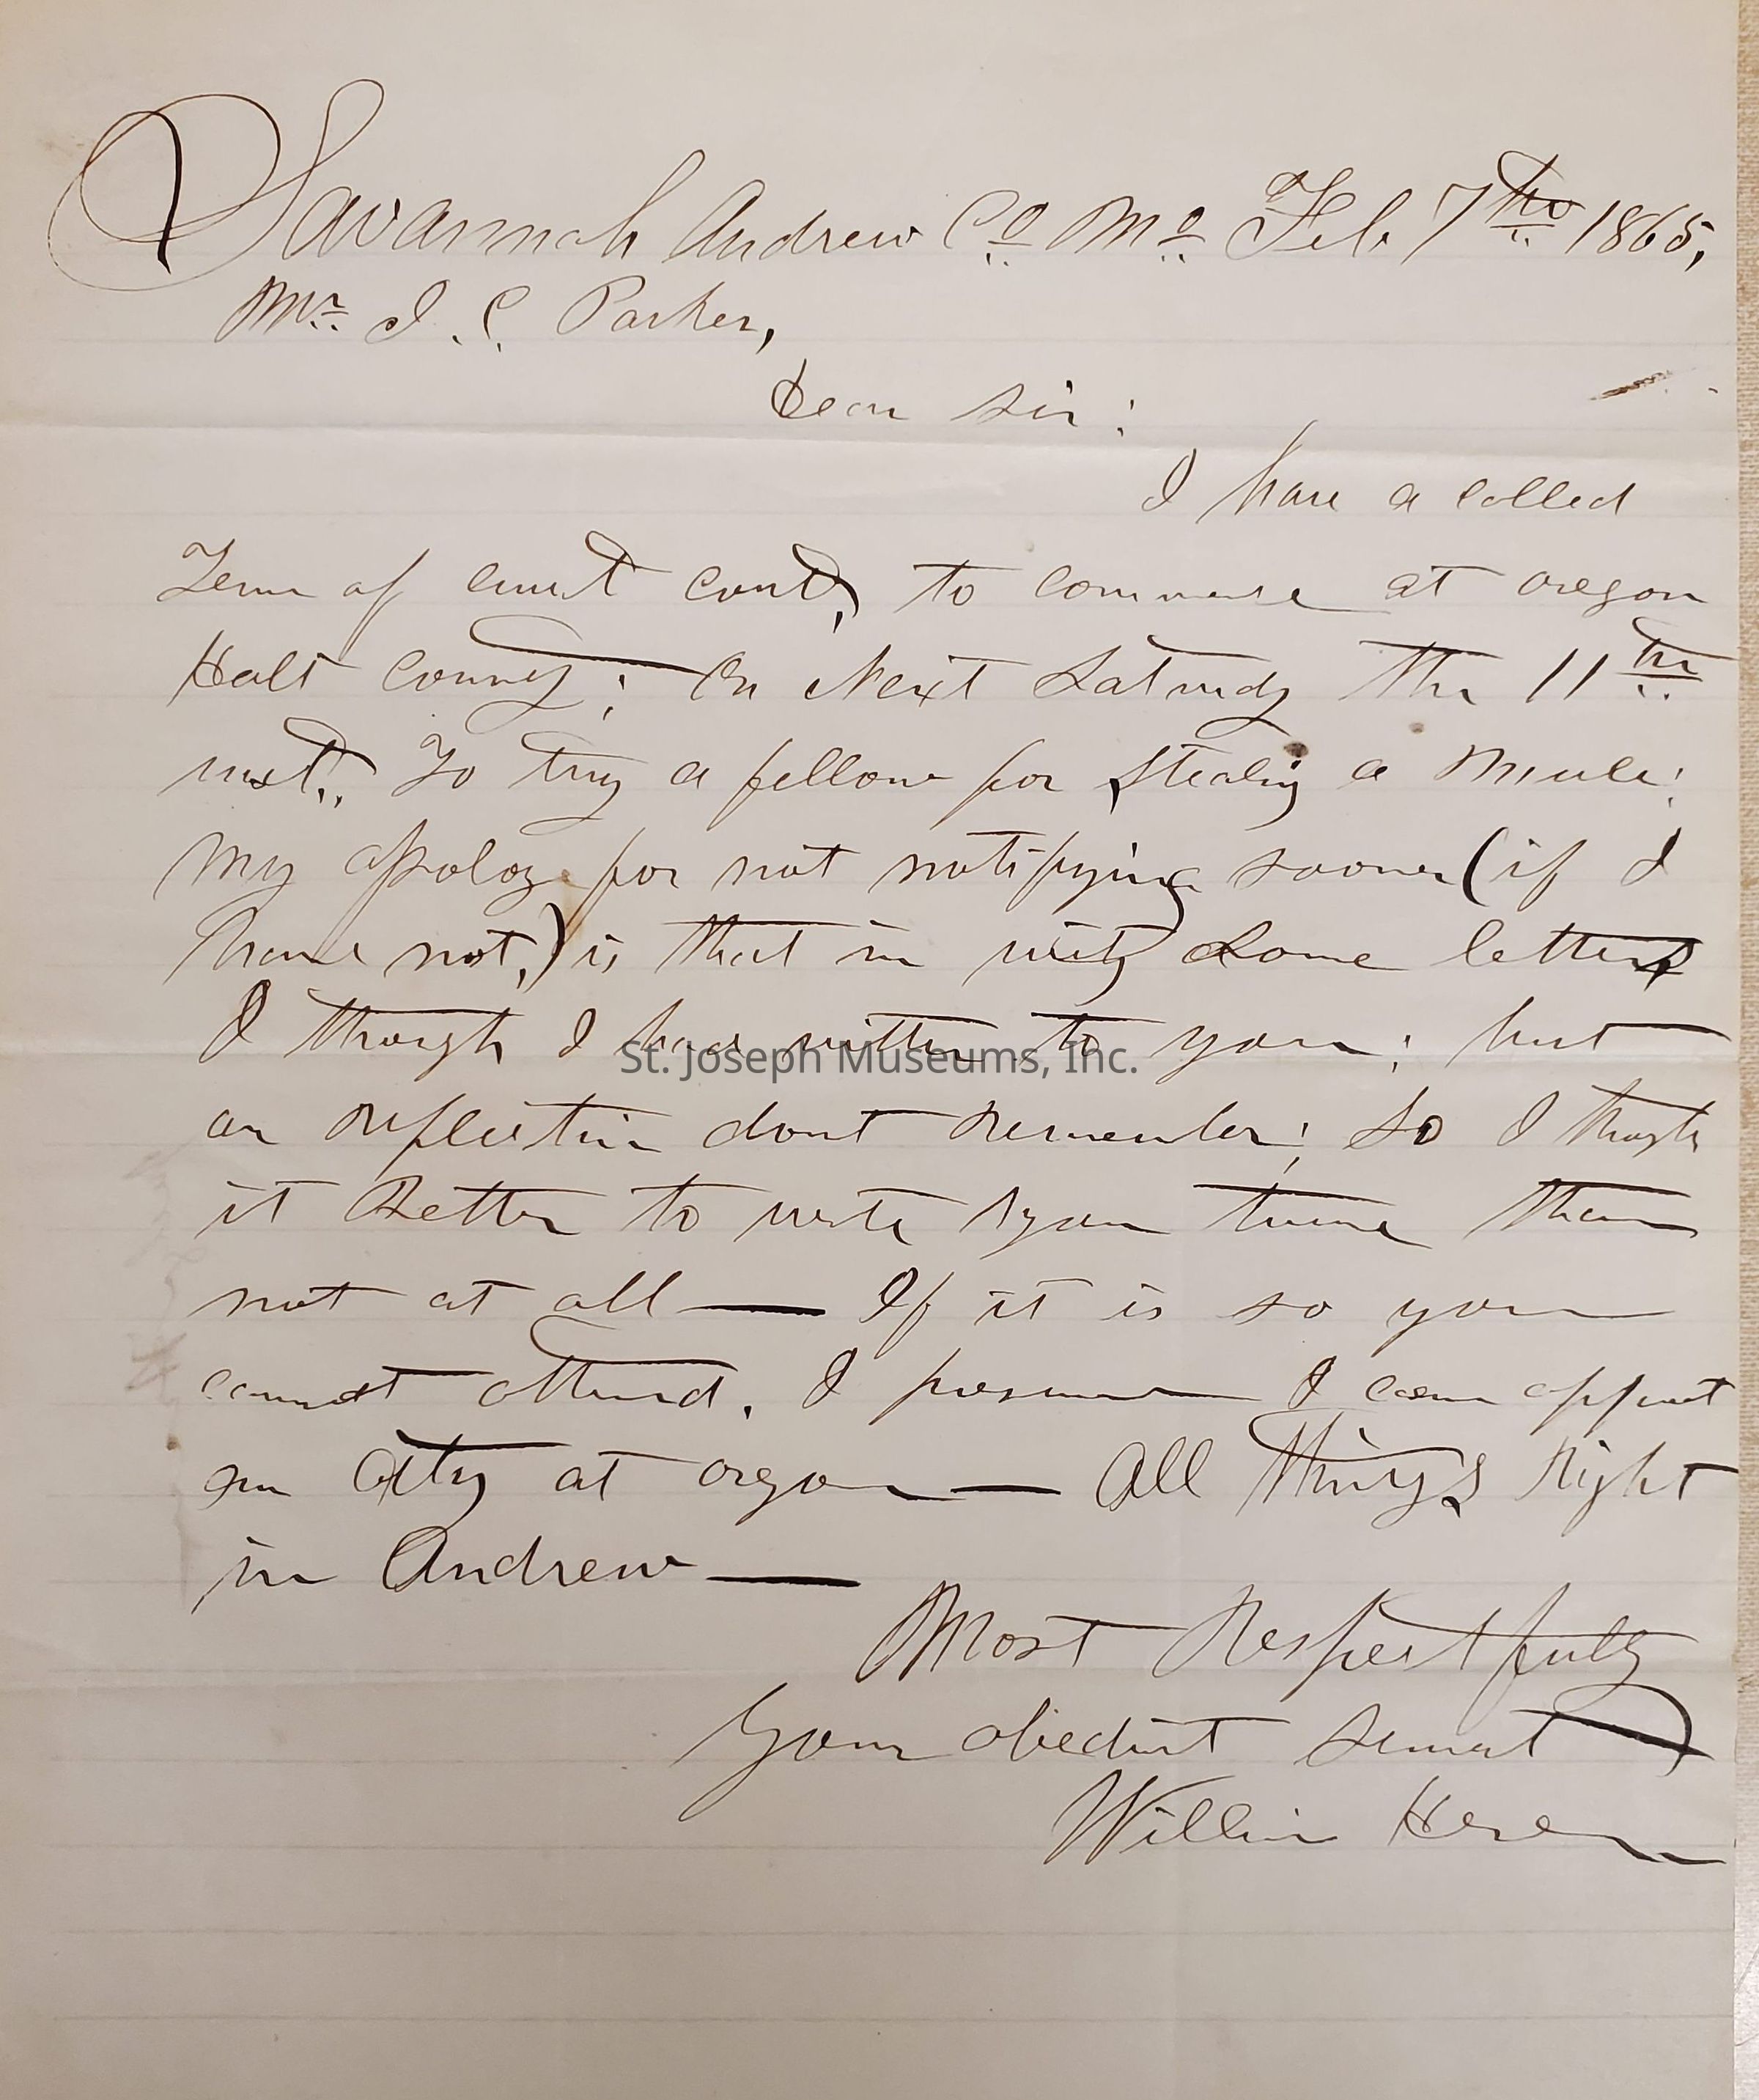 Savannah Andrew Co Mo Feb 7th 1865,
Mr. I. C. Parker,
Dear Sir:
I have a called
Term of court, to commence at Oregon
Holt County; On Next Saturdy the 11th
inst. To try a fellow for Stealing a Mule;
My apology for not notifying sooner (if I
have not,) is that in writg Some letters
I though I had written to you; but
on reflection dont remember; So I though
it Better to write you time than
not at all — If it is so you
cannot attend, I presume I can appoint
an Atty at oregon — All things right
in Andrew —
Most Respectfully
Your obedient Servant
William Heren
St. Joseph Museums, Inc.